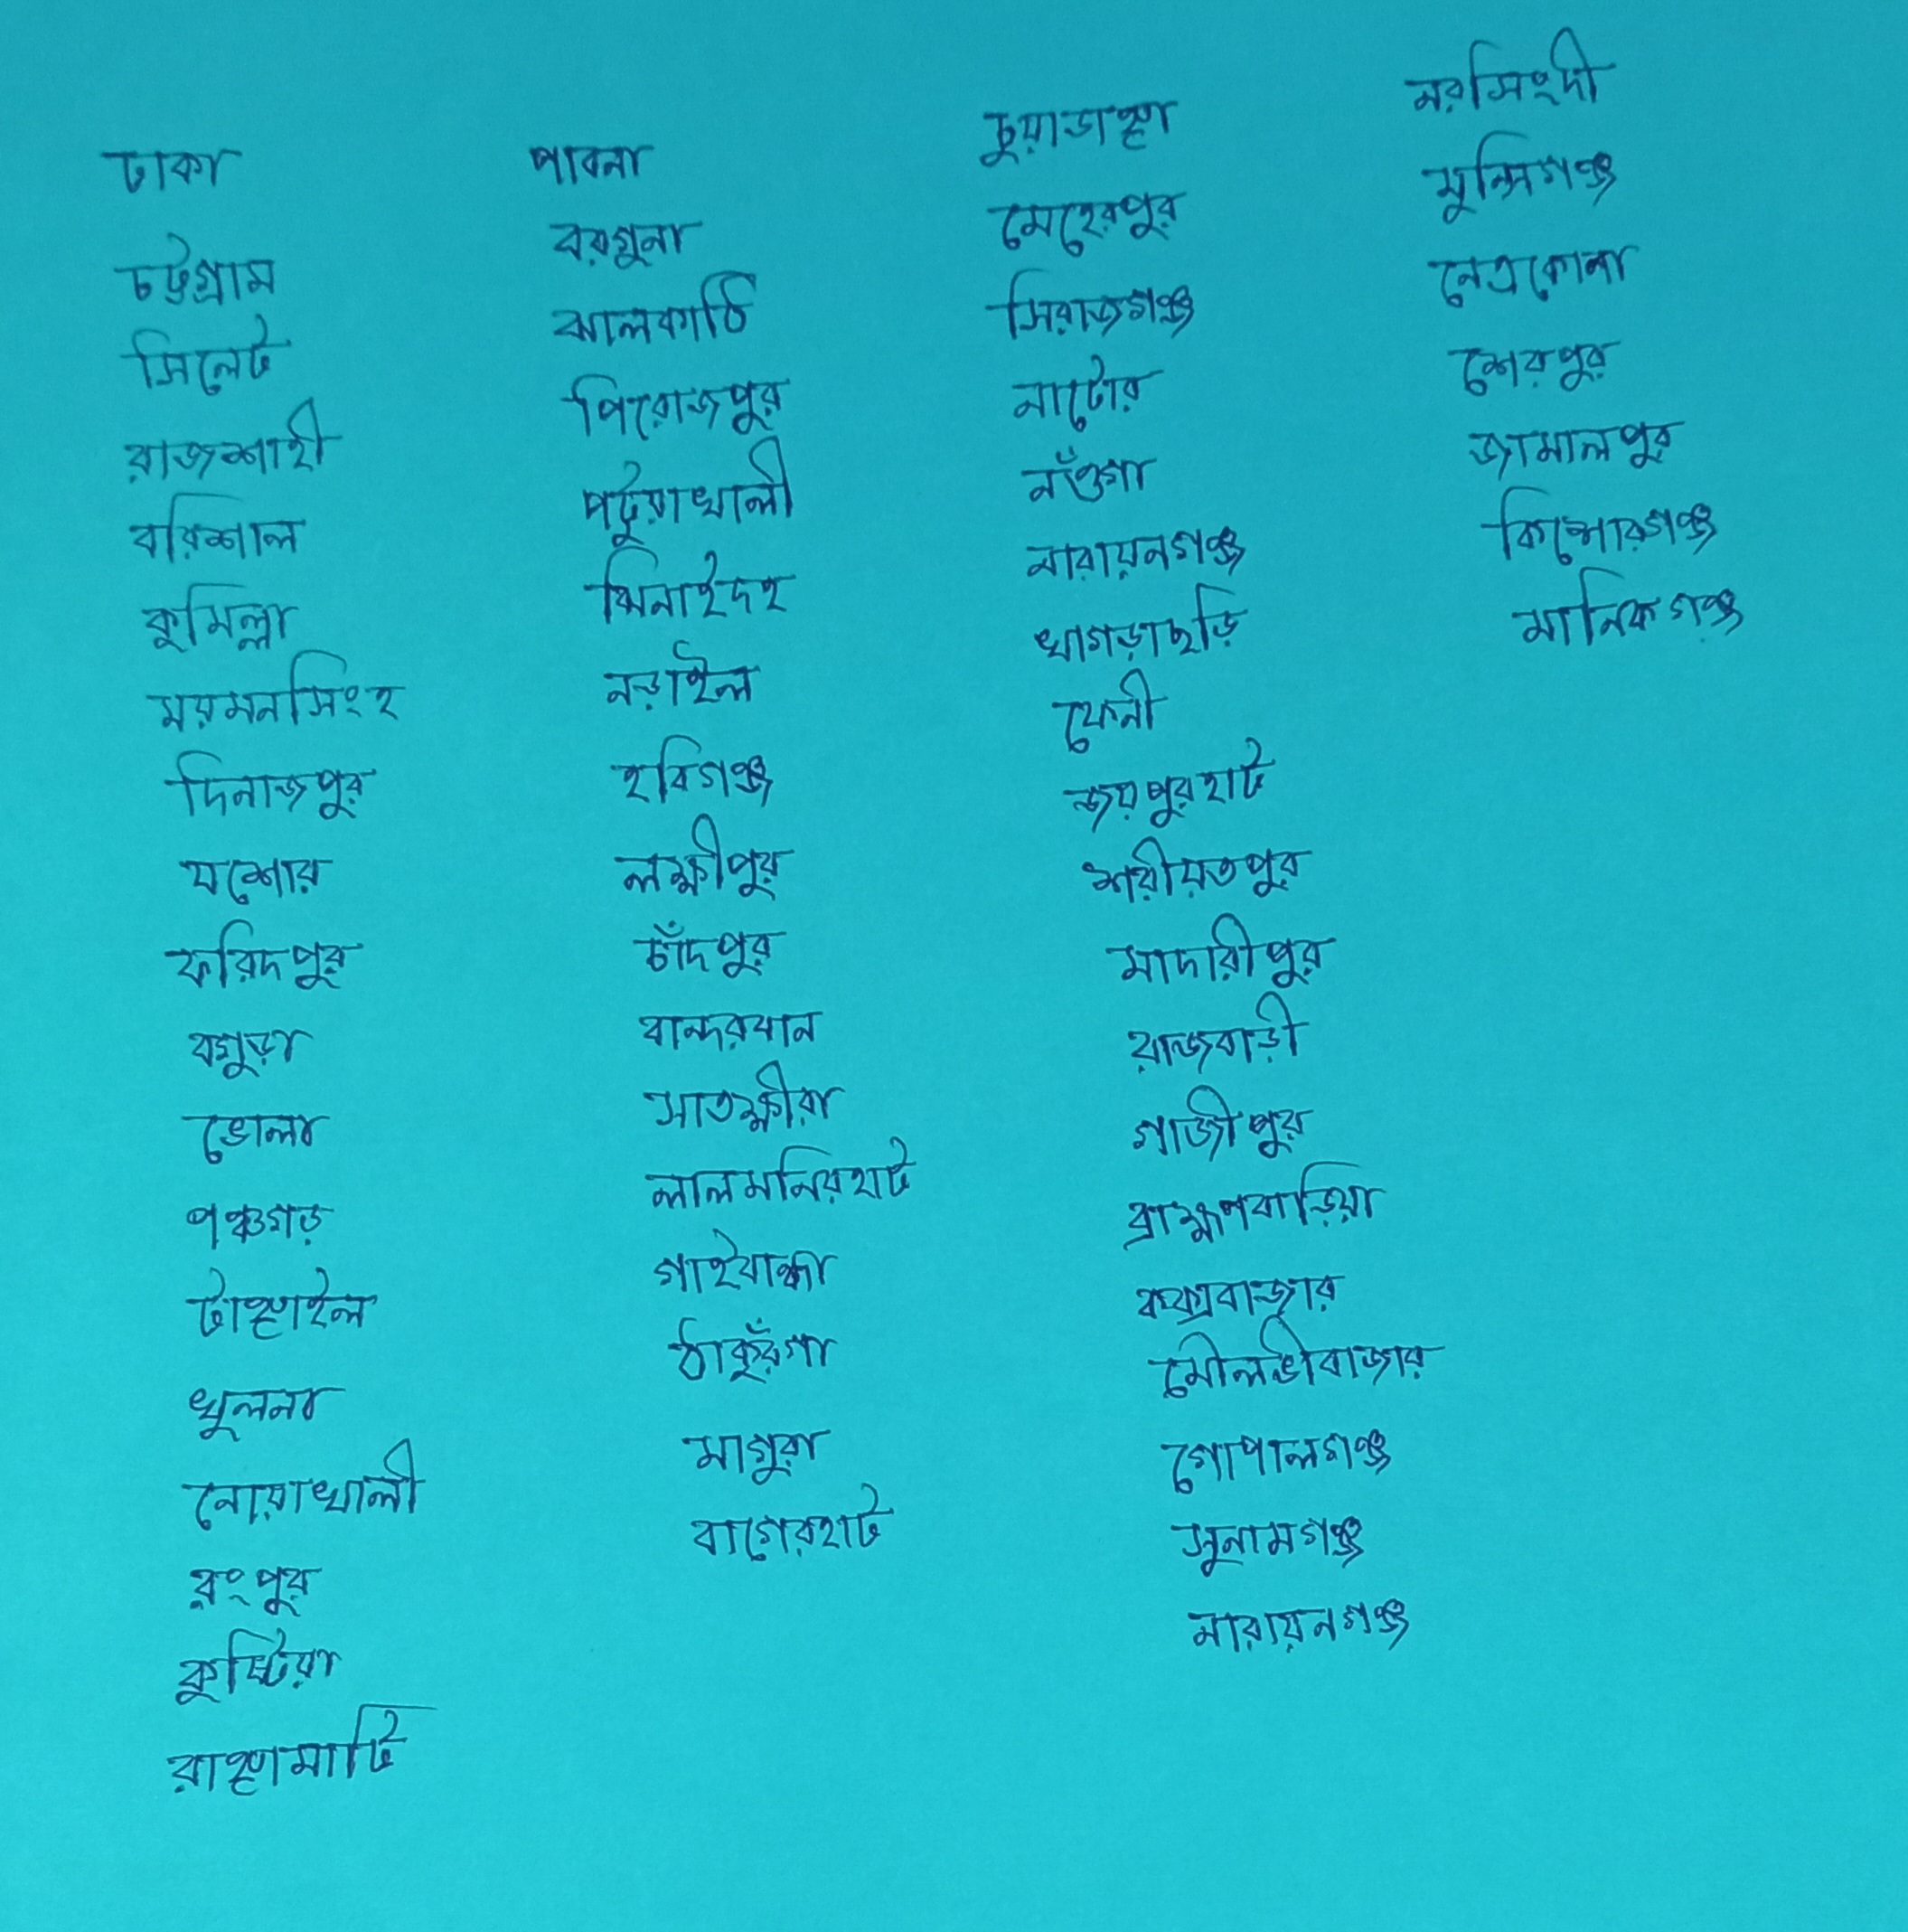 ঢাকা
চট্টগ্রাম
সিলেট
রাজশাহী
বরিশাল
কুমিল্লা
ময়মনসিংহ
দিনাজপুর
যশোর
ফরিদপুর
বগুড়া
ভোলা
পঞ্চগড়
টাঙ্গাইল
খুলনা
নোয়াখালী
রংপুর
কুষ্টিয়া
রাঙ্গামাটি
পাবনা
বরগুনা
ঝালকাঠি
পিরোজপুর
পটুয়াখালী
ঝিনাইদহ
নড়াইল
হবিগঞ্জ
লক্ষীপুর
চাঁদপুর
বান্দরবান
সাতক্ষীরা
লালমনিরহাট
গাইবান্ধা
ঠাকুরঁগা
মাগুরা
বাগেরহাট
চুয়াডাঙ্গা
মেহেরপুর
সিরাজগঞ্জ
নাটোর
নঁওগা
নারায়নগঞ্জ
খাগড়াছড়ি
ফেনী
জয়পুরহাট
শরীয়তপুর
মাদারীপুর
রাজবাড়ী
গাজীপুর
ব্রাহ্মণবাড়িয়া
কক্সবাজার
মৌলভীবাজার
গোপালগঞ্জ
সুনামগঞ্জ
নারায়নগঞ্জ
নরসিংদী
মুন্সিগঞ্জ
নেত্রকোনা
শেরপুর
জামালপুর
কিশোরগঞ্জ
মানিকগঞ্জ